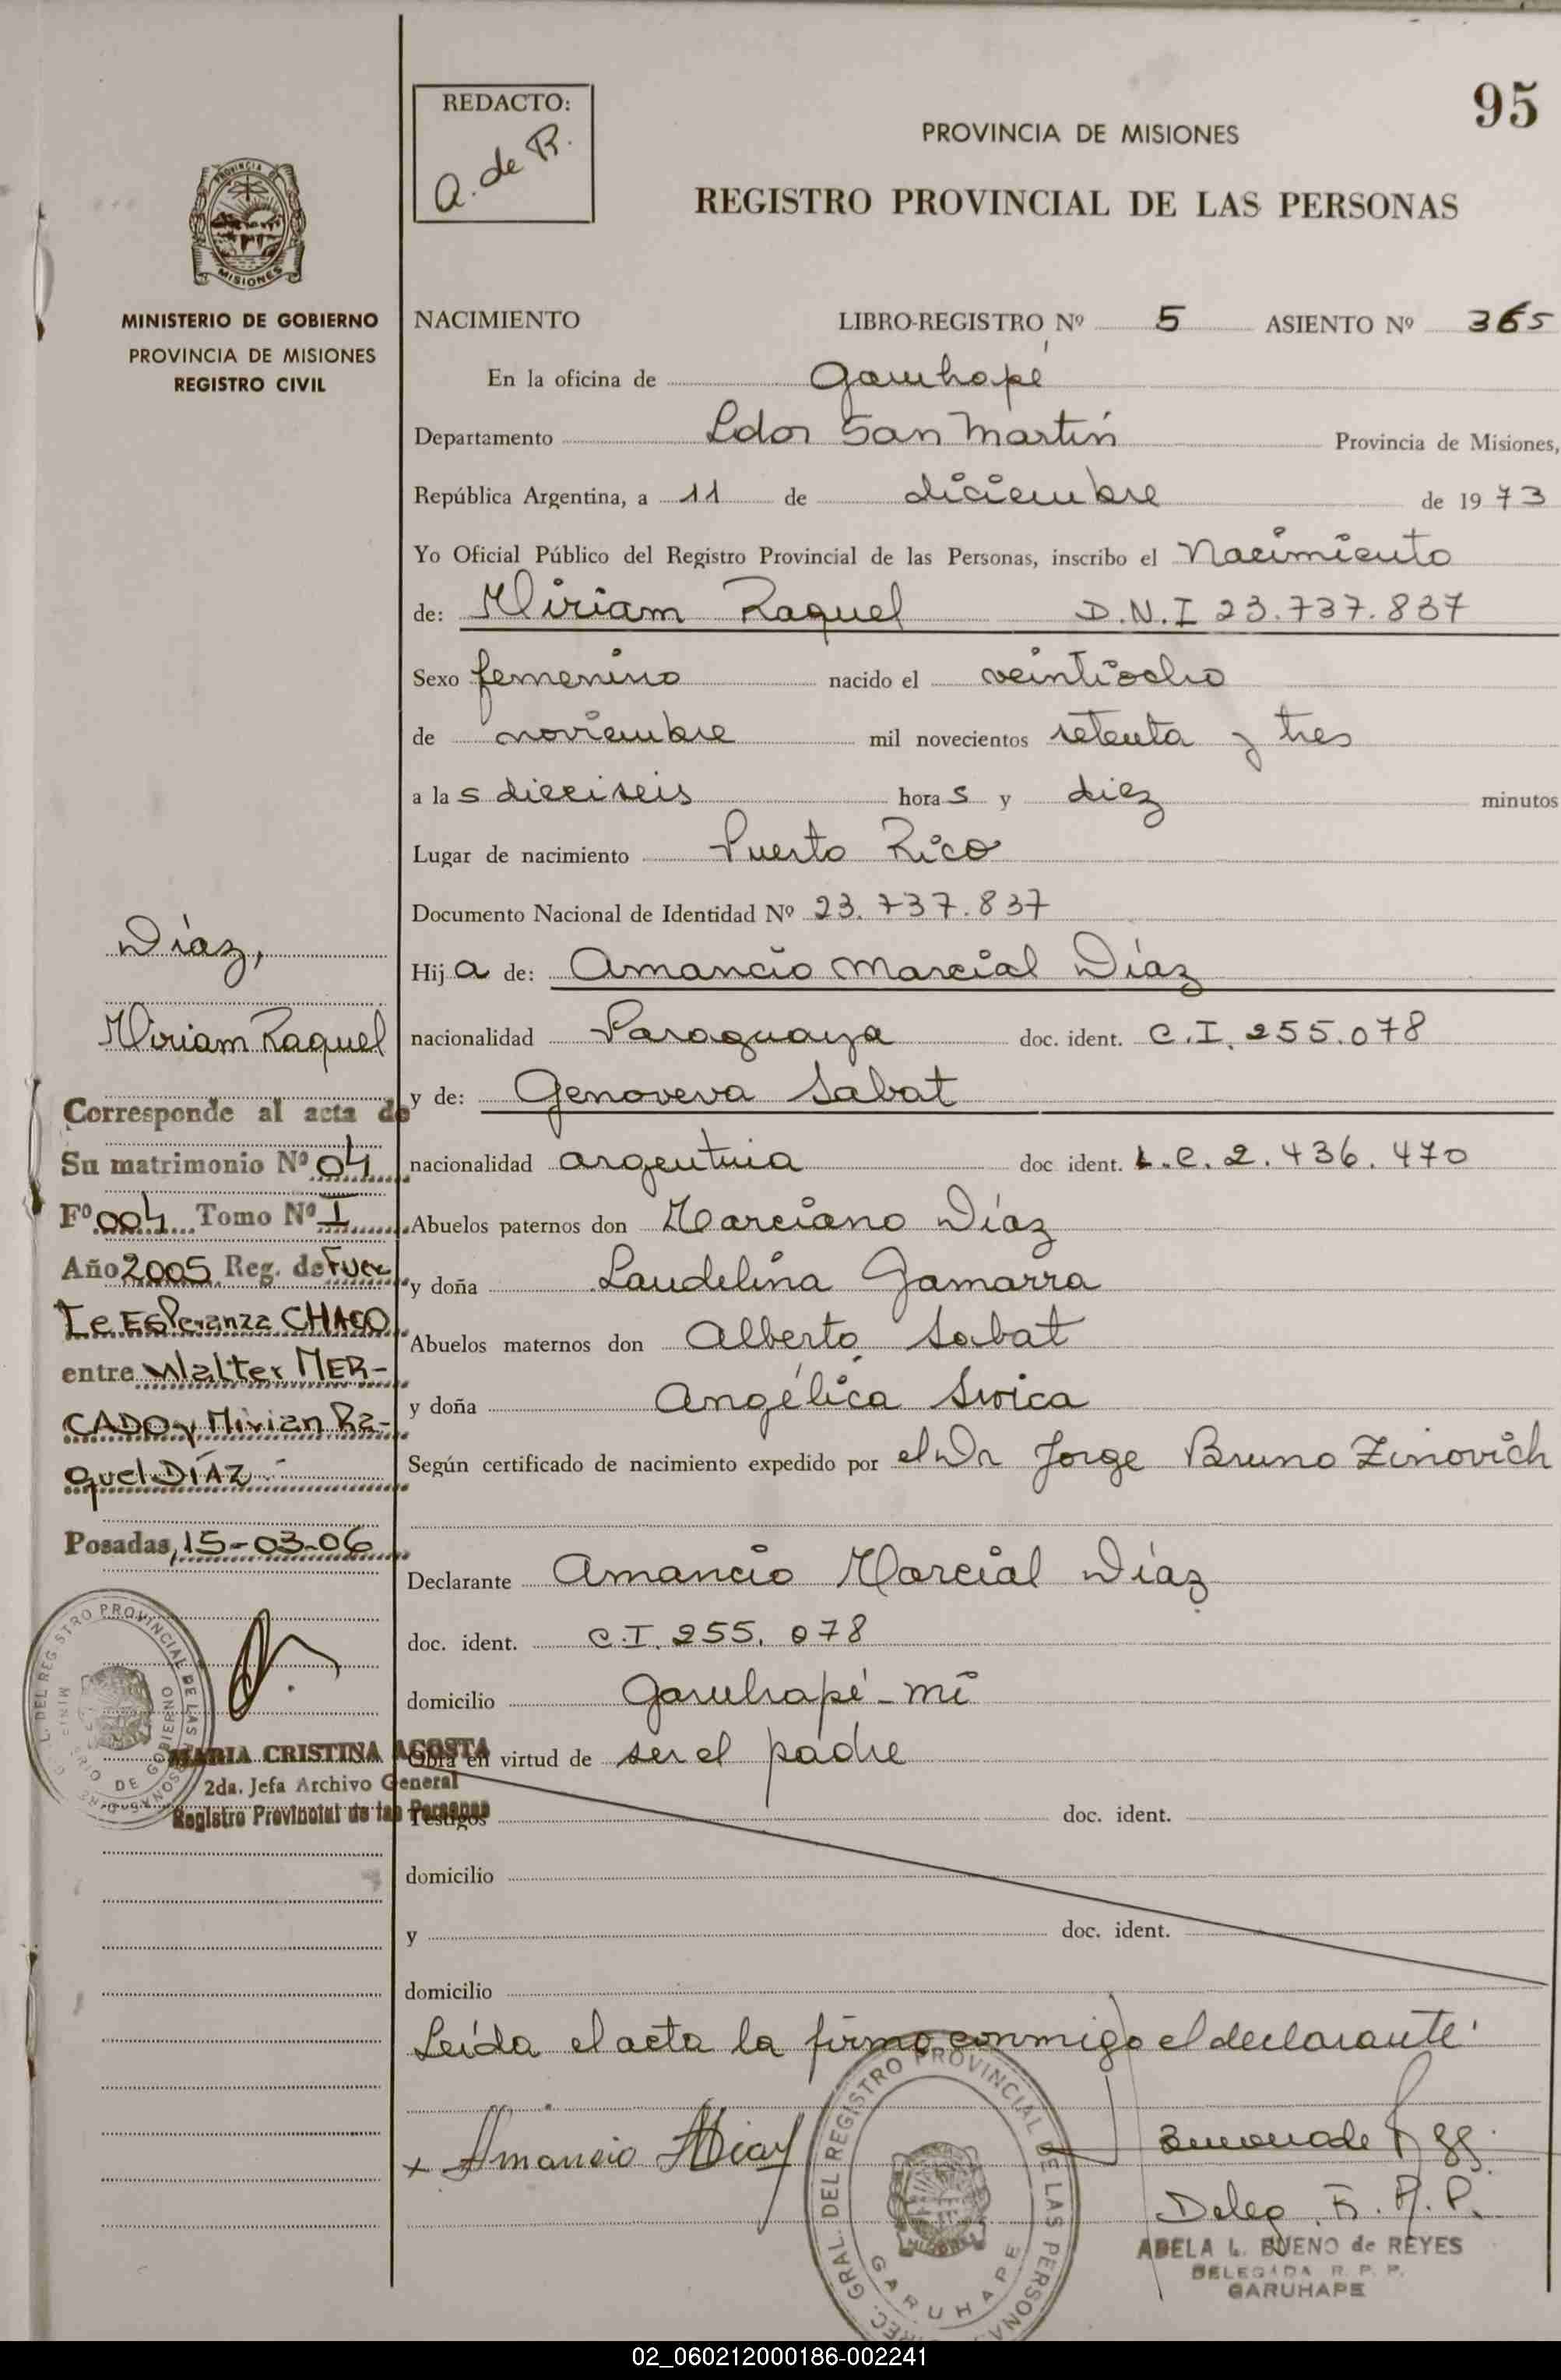 95
REDACTO:
A. de R.
PROVINCIA DE MISIONES
REGISTRO PROVINCIAL DE LAS PERSONAS
PROVINCIA DE
MISIONES
MINISTERIO DE GOBIERNO
PROVINCIA DE MISIONES
REGISTRO CIVIL
NACIMIENTO LIBRO-REGISTRO Nº 5 ASIENTO Nº 365
En la oficina de Garuhapé
Departamento Ldor San Martín Provincia de Misiones,
República Argentina, a 11 de diciembre de 1973
Yo Oficial Público del Registro Provincial de las Personas, inscribo el Nacimiento
de: Miriam Raquel D.N.I 23.737.837
Sexo femenino nacido el veintiocho
de noviembre mil novecientos setenta y tres
a las dieciseis horas y diez minutos
Lugar de nacimiento Puerto Rico
Documento Nacional de Identidad Nº 23.737.837
Hija de: Amancio Marcial Díaz
nacionalidad Paraguaya doc. ident. C.I. 255.078
y de: Genoveva Sabat
nacionalidad argentina doc ident. L.C. 2.436.470
Abuelos paternos don Marciano Díaz
y doña Laudelina Gamarra
Abuelos maternos don Alberto Sabat
y doña Angélica
Según certificado de nacimiento expedido por el Dr Jorge Bruno Zinovich
Declarante Amancio Marcial Díaz
doc. ident. C.I. 255.078
domicilio Garuhapé-mí
Obra en virtud de ser el padre
Testigos doc. ident.
domicilio
y doc. ident.
domicilio
Leída el acta la firma conmigo el declarante.
x Amancio M Diaz
Deleg. R.P.P.
ADELA L. BUENO de REYES
DELEGADA R. P. P.
GARUHAPE
DIREC. GRAL. DEL REGISTRO PROVINCIAL DE LAS PERSONAS
GARUHAPE
Díaz,
Miriam Raquel
Corresponde al acta de
Su matrimonio Nº 04
Fº 004 Tomo Nº I
Año 2005 Reg. de Fuer
Te Esperanza CHACO
entre Walter MER-
CADO y Mirian Ra-
quel DÍAZ.-
Posadas, 15-03-06
L. DEL REGISTRO PROVINCIAL DE LAS PERSONAS
MINISTERIO DE GOBIERNO
MARIA CRISTINA ACOSTA
2da. Jefa Archivo General
Registro Provincial de las Personas
02_060212000186-002241